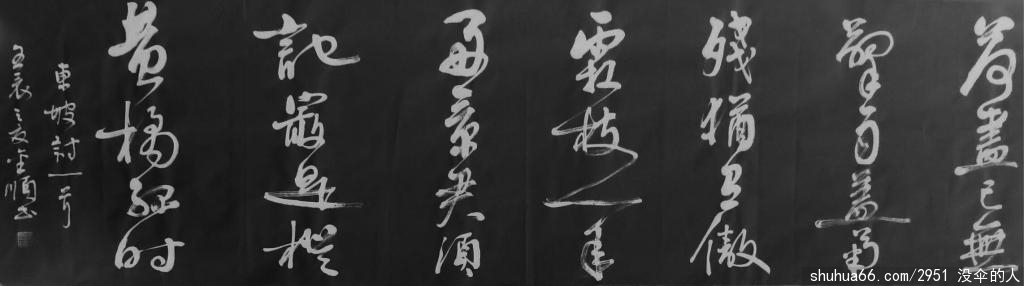 荷盡已無
擎雨蓋菊
殘猶有傲
霜枝一年
好景君須
記最是橙
黄橘綠時
東坡詩一首
壬辰之夏順書
shuhua66.com/2951 没伞的人